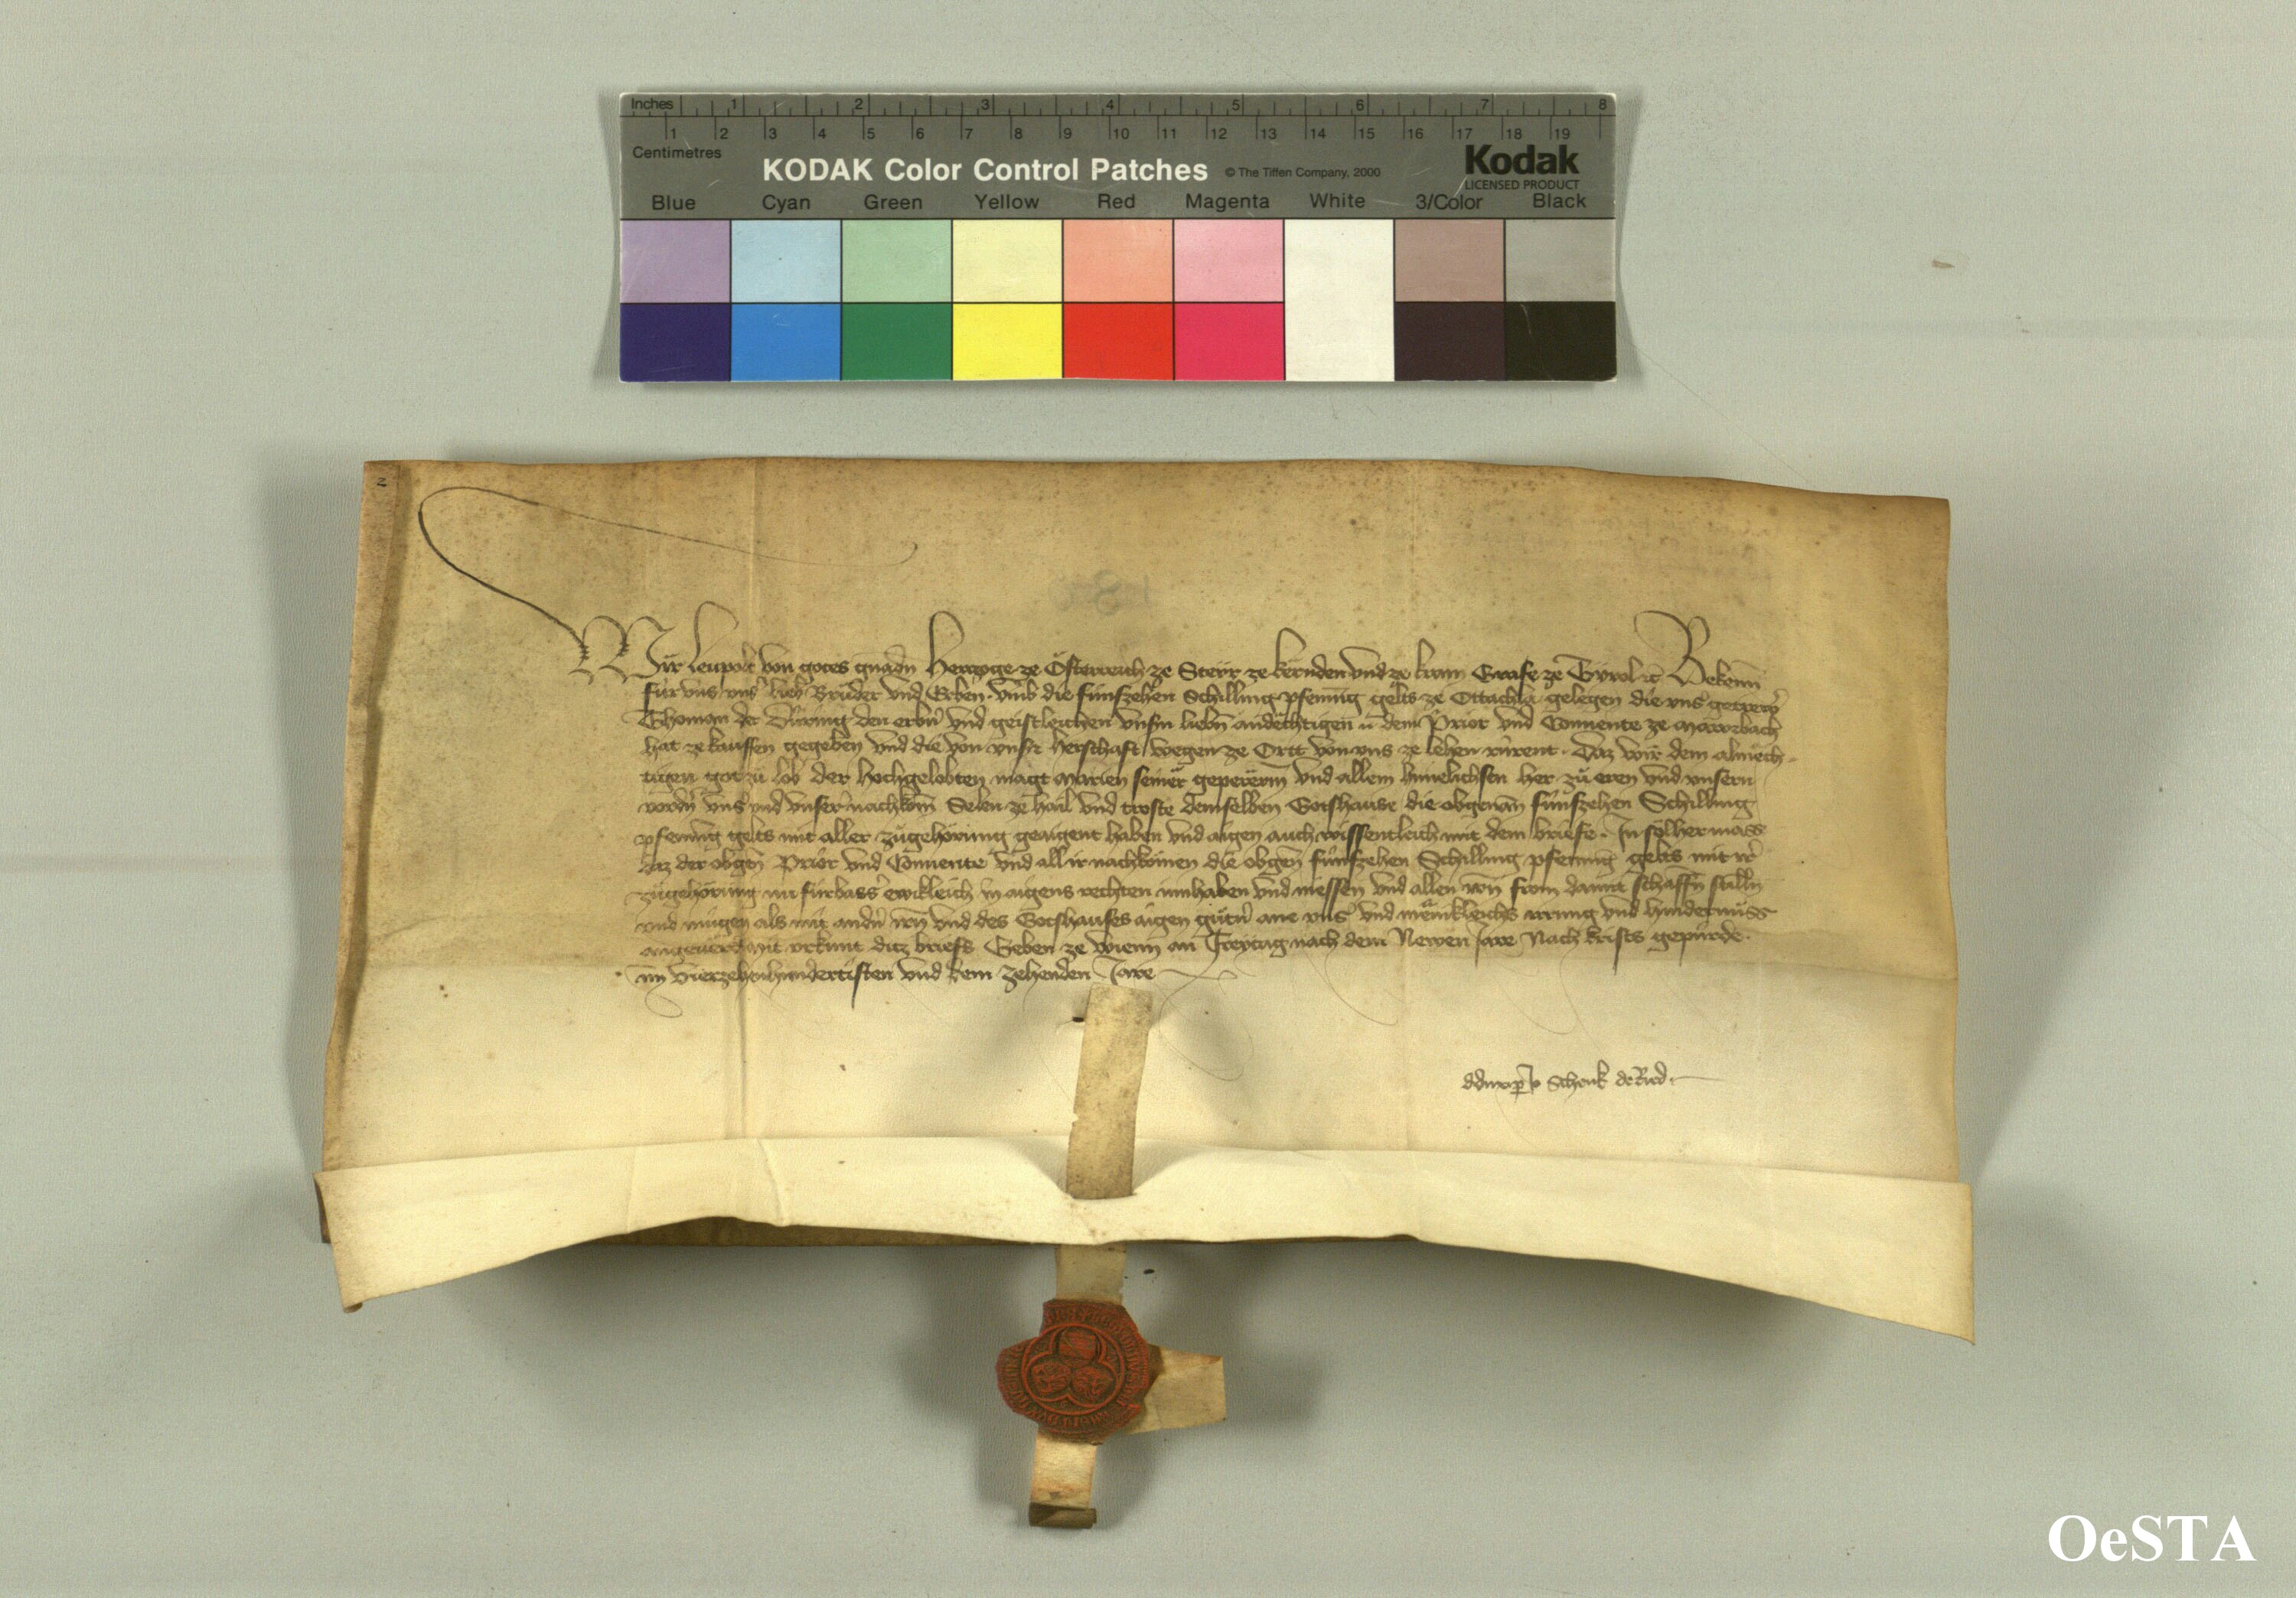 Inches 1 2 3 4 5 6 7 8
1 2 3 4 5 6 7 8 9 10 11 12 13 14 15 16 17 18 19
Centimetres
KODAK Color Control Patches © The Tiffen Company, 2000 Kodak
LICENSED PRODUCT
Blue Cyan Green Yellow Red Magenta White 3/Color Black
2
Wir Leupolt von gotes gnadn Herczoge ze Österreich ze Steyr ze kernden vnd ze krain Grafe ze Tyrol etc Bekenn
für vns vnser lieb Brüder vnd Erben. vmb die fünfzehen Schilling phenning gelts ze Ottachla gelegen die vns getrewr
Thoman der Düring den erbn vnd geistleichen vnsn liebn andechtigen .. dem Prior vnd Conuente ze Mawrbach
hat ze kauffen gegeben vnd die von vnsr herschaft wegen ze Ortt von vns ze lehen rürent. Daz wir dem almech-
tigen got zu lob der hochgelobten magt Marien seiner gepererin vnd allem himelischen her zu eren vnd vnsern
vordn vns vnd vnser nachkom Selen ze hail vnd troste demselben Gotshause die obgenan fünfzehen Schilling
phenning gelts mit aller zugehörung geaigent haben vnd aigen auch wissentleich mit dem briefe. In sölher mass
daz der obgen Prior vnd Conuente vnd all ir nachkömen die obgen fünfzehen Schilling phenning gelts mit ir
zugehörung nu fürbass ewikleich in aigens rechten innhaben vnd niessen vnd allen irn frum damit schaffn sülln
vnd mügen als mit andn irn vnd des Gotshauses aigen gütn ane vns vnd menikleichs irrung vnd hindernüss
angeuerd mit vrkunt ditz briefs Geben ze wienn an Freytag nach dem Newen Jare Nach krists gepürde.
im vierzehenhundertisten vnd dem zehenden Jare
Schenk de Ried.
OeSTA